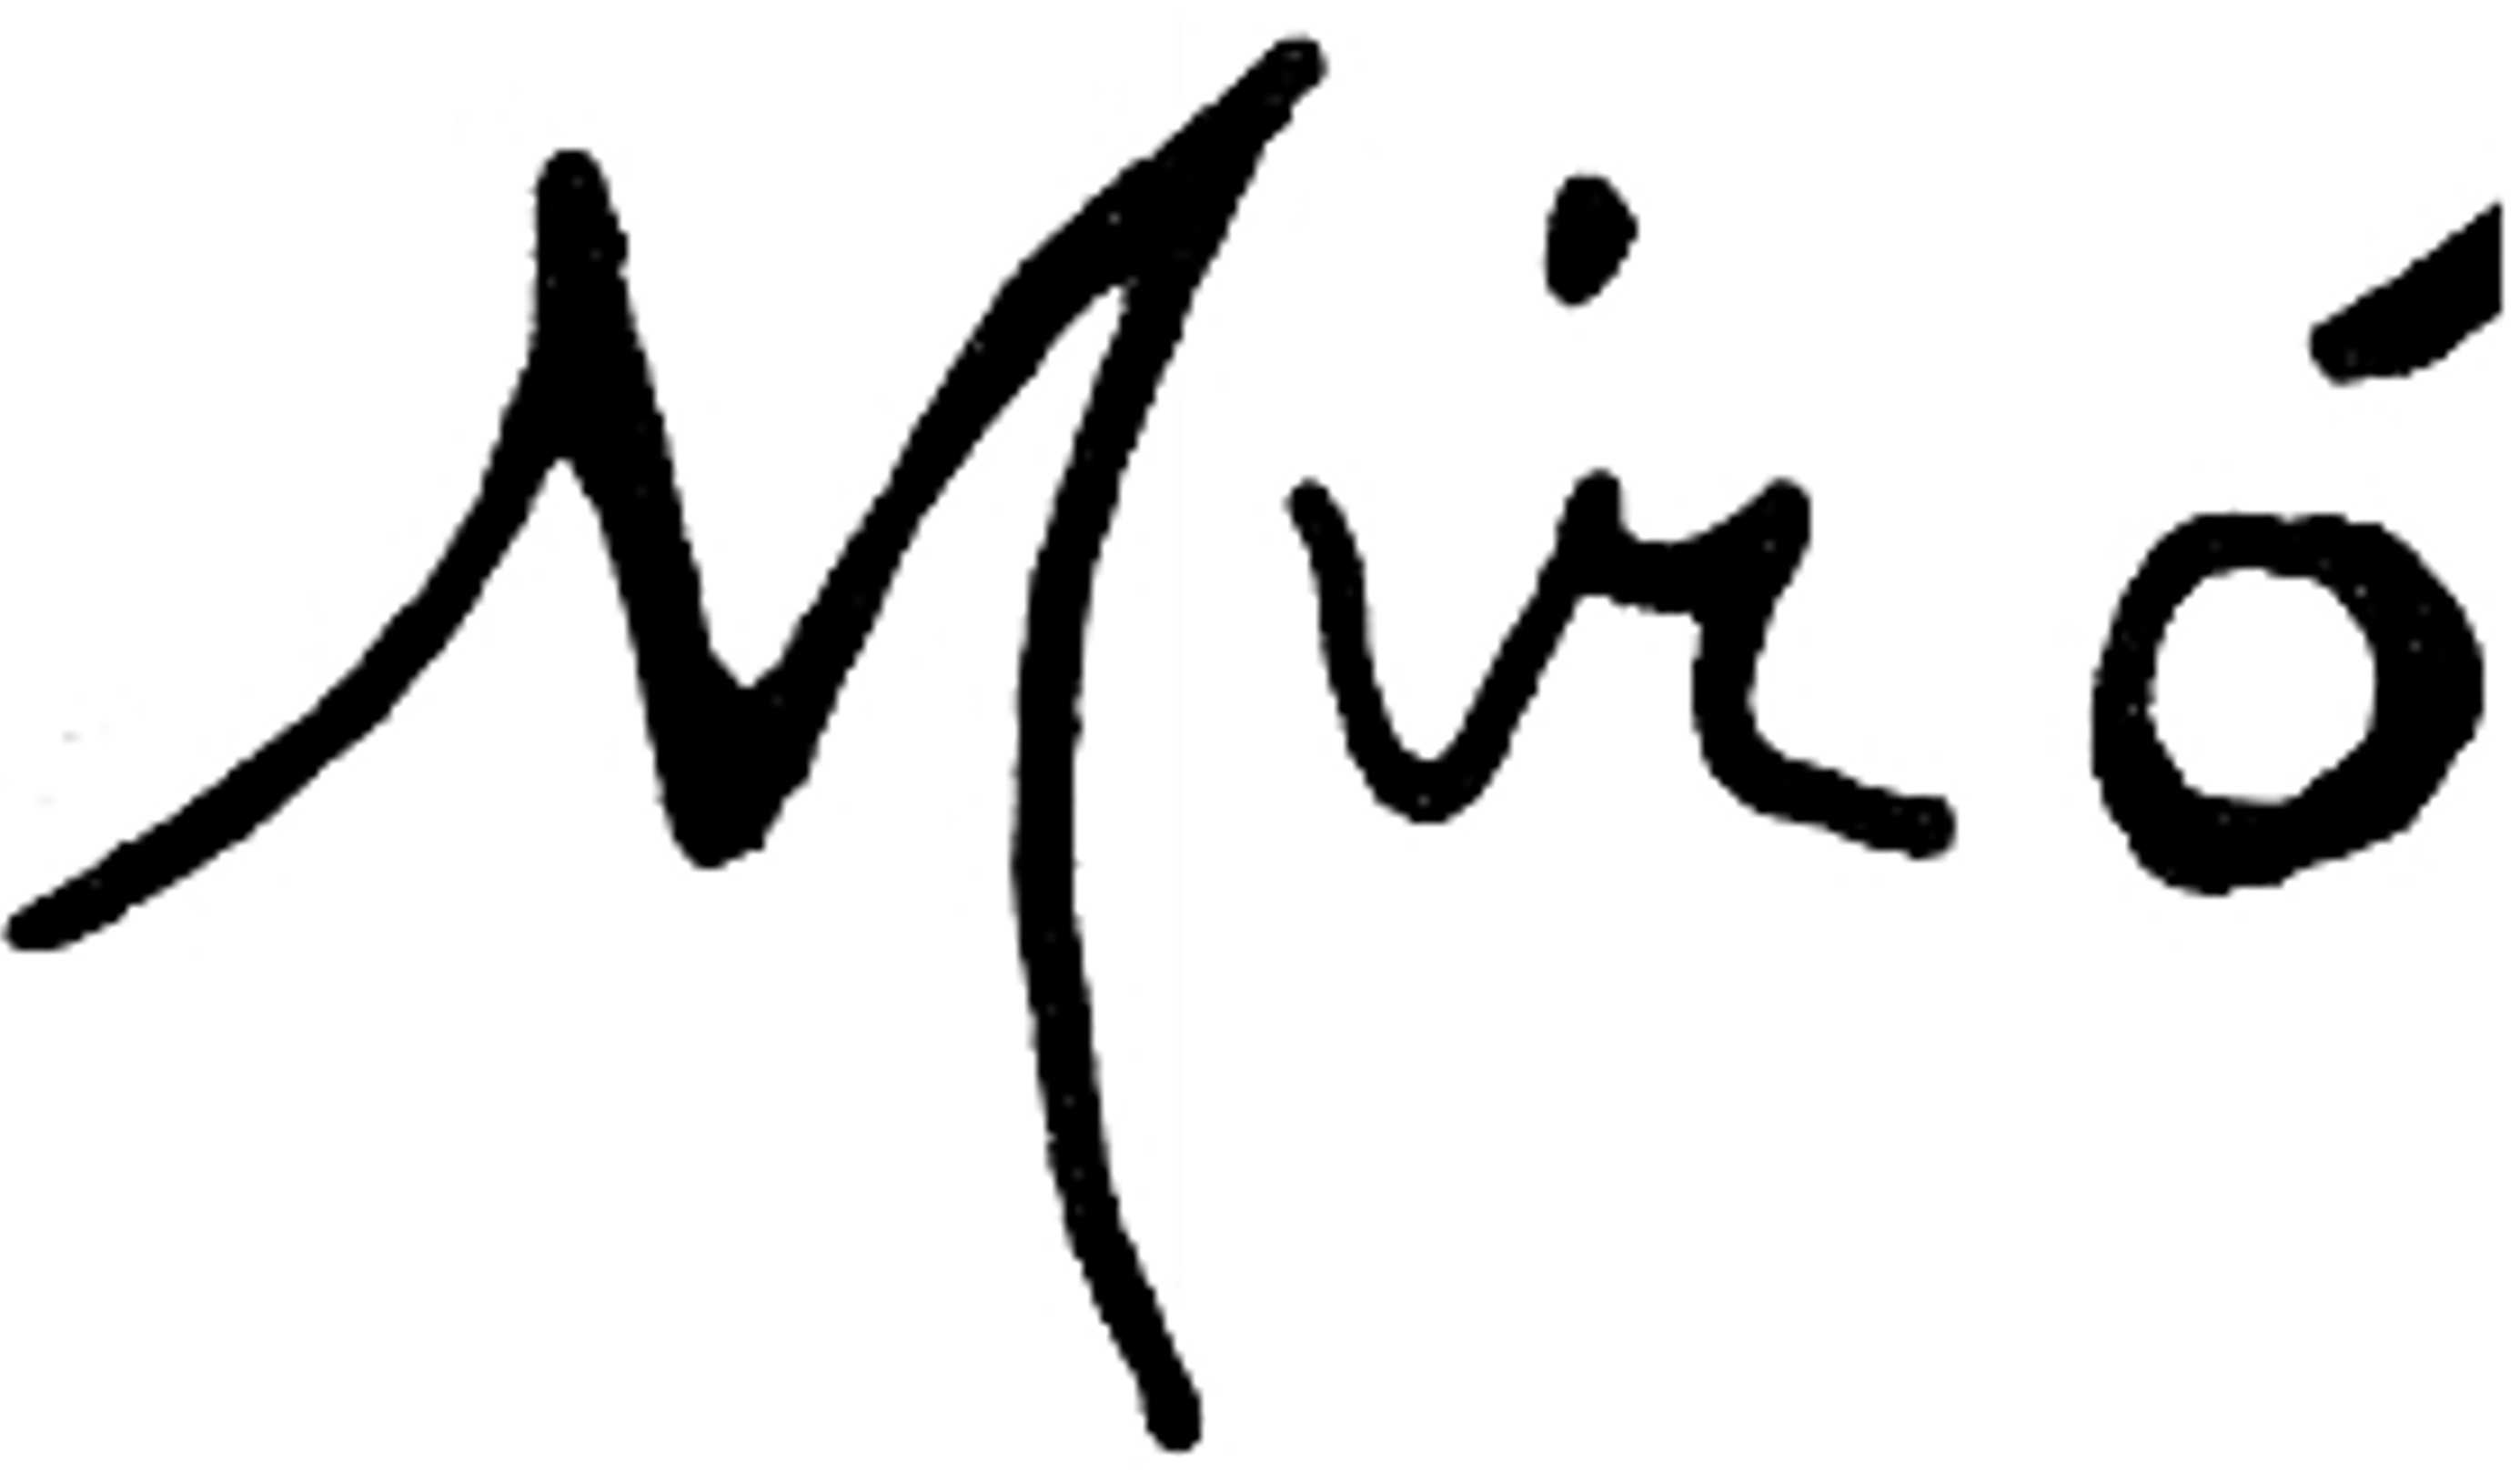 Miró